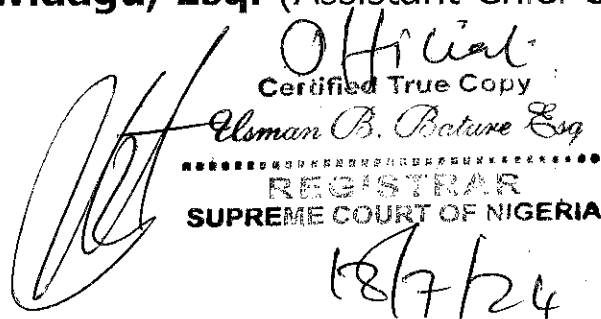 Esq. (Assistant Chief
Official
Certified True Copy
Usman B. Bature Esq
REGISTRAR
SUPREME COURT OF NIGERIA
18/7/24